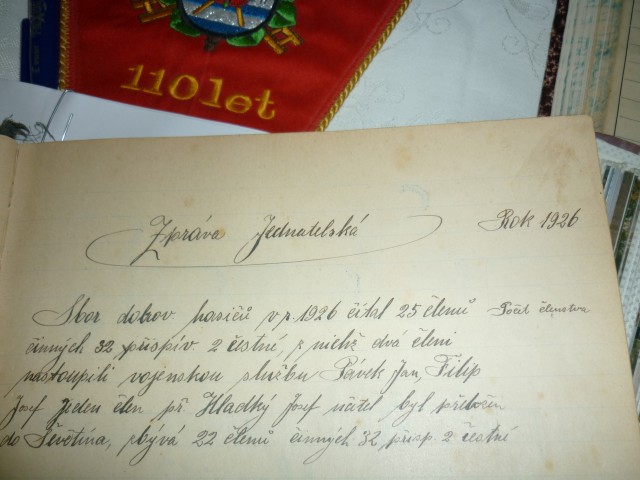 110 let
Zpráva Jednatelská
Rok 1926
Sbor dobrov. hasičů v r. 1926 čítal 25 členů
Počet členstva
činných 32 přispív 2 čestné, z nichž dva členi
nastoupili vojenskou službu Pávek Jan, Filip
Josef Jeden člen př. Hladký Josef učitel byl přeložen
do Ševětína, zbývá 22 členů činných 32 přisp. 2 čestné